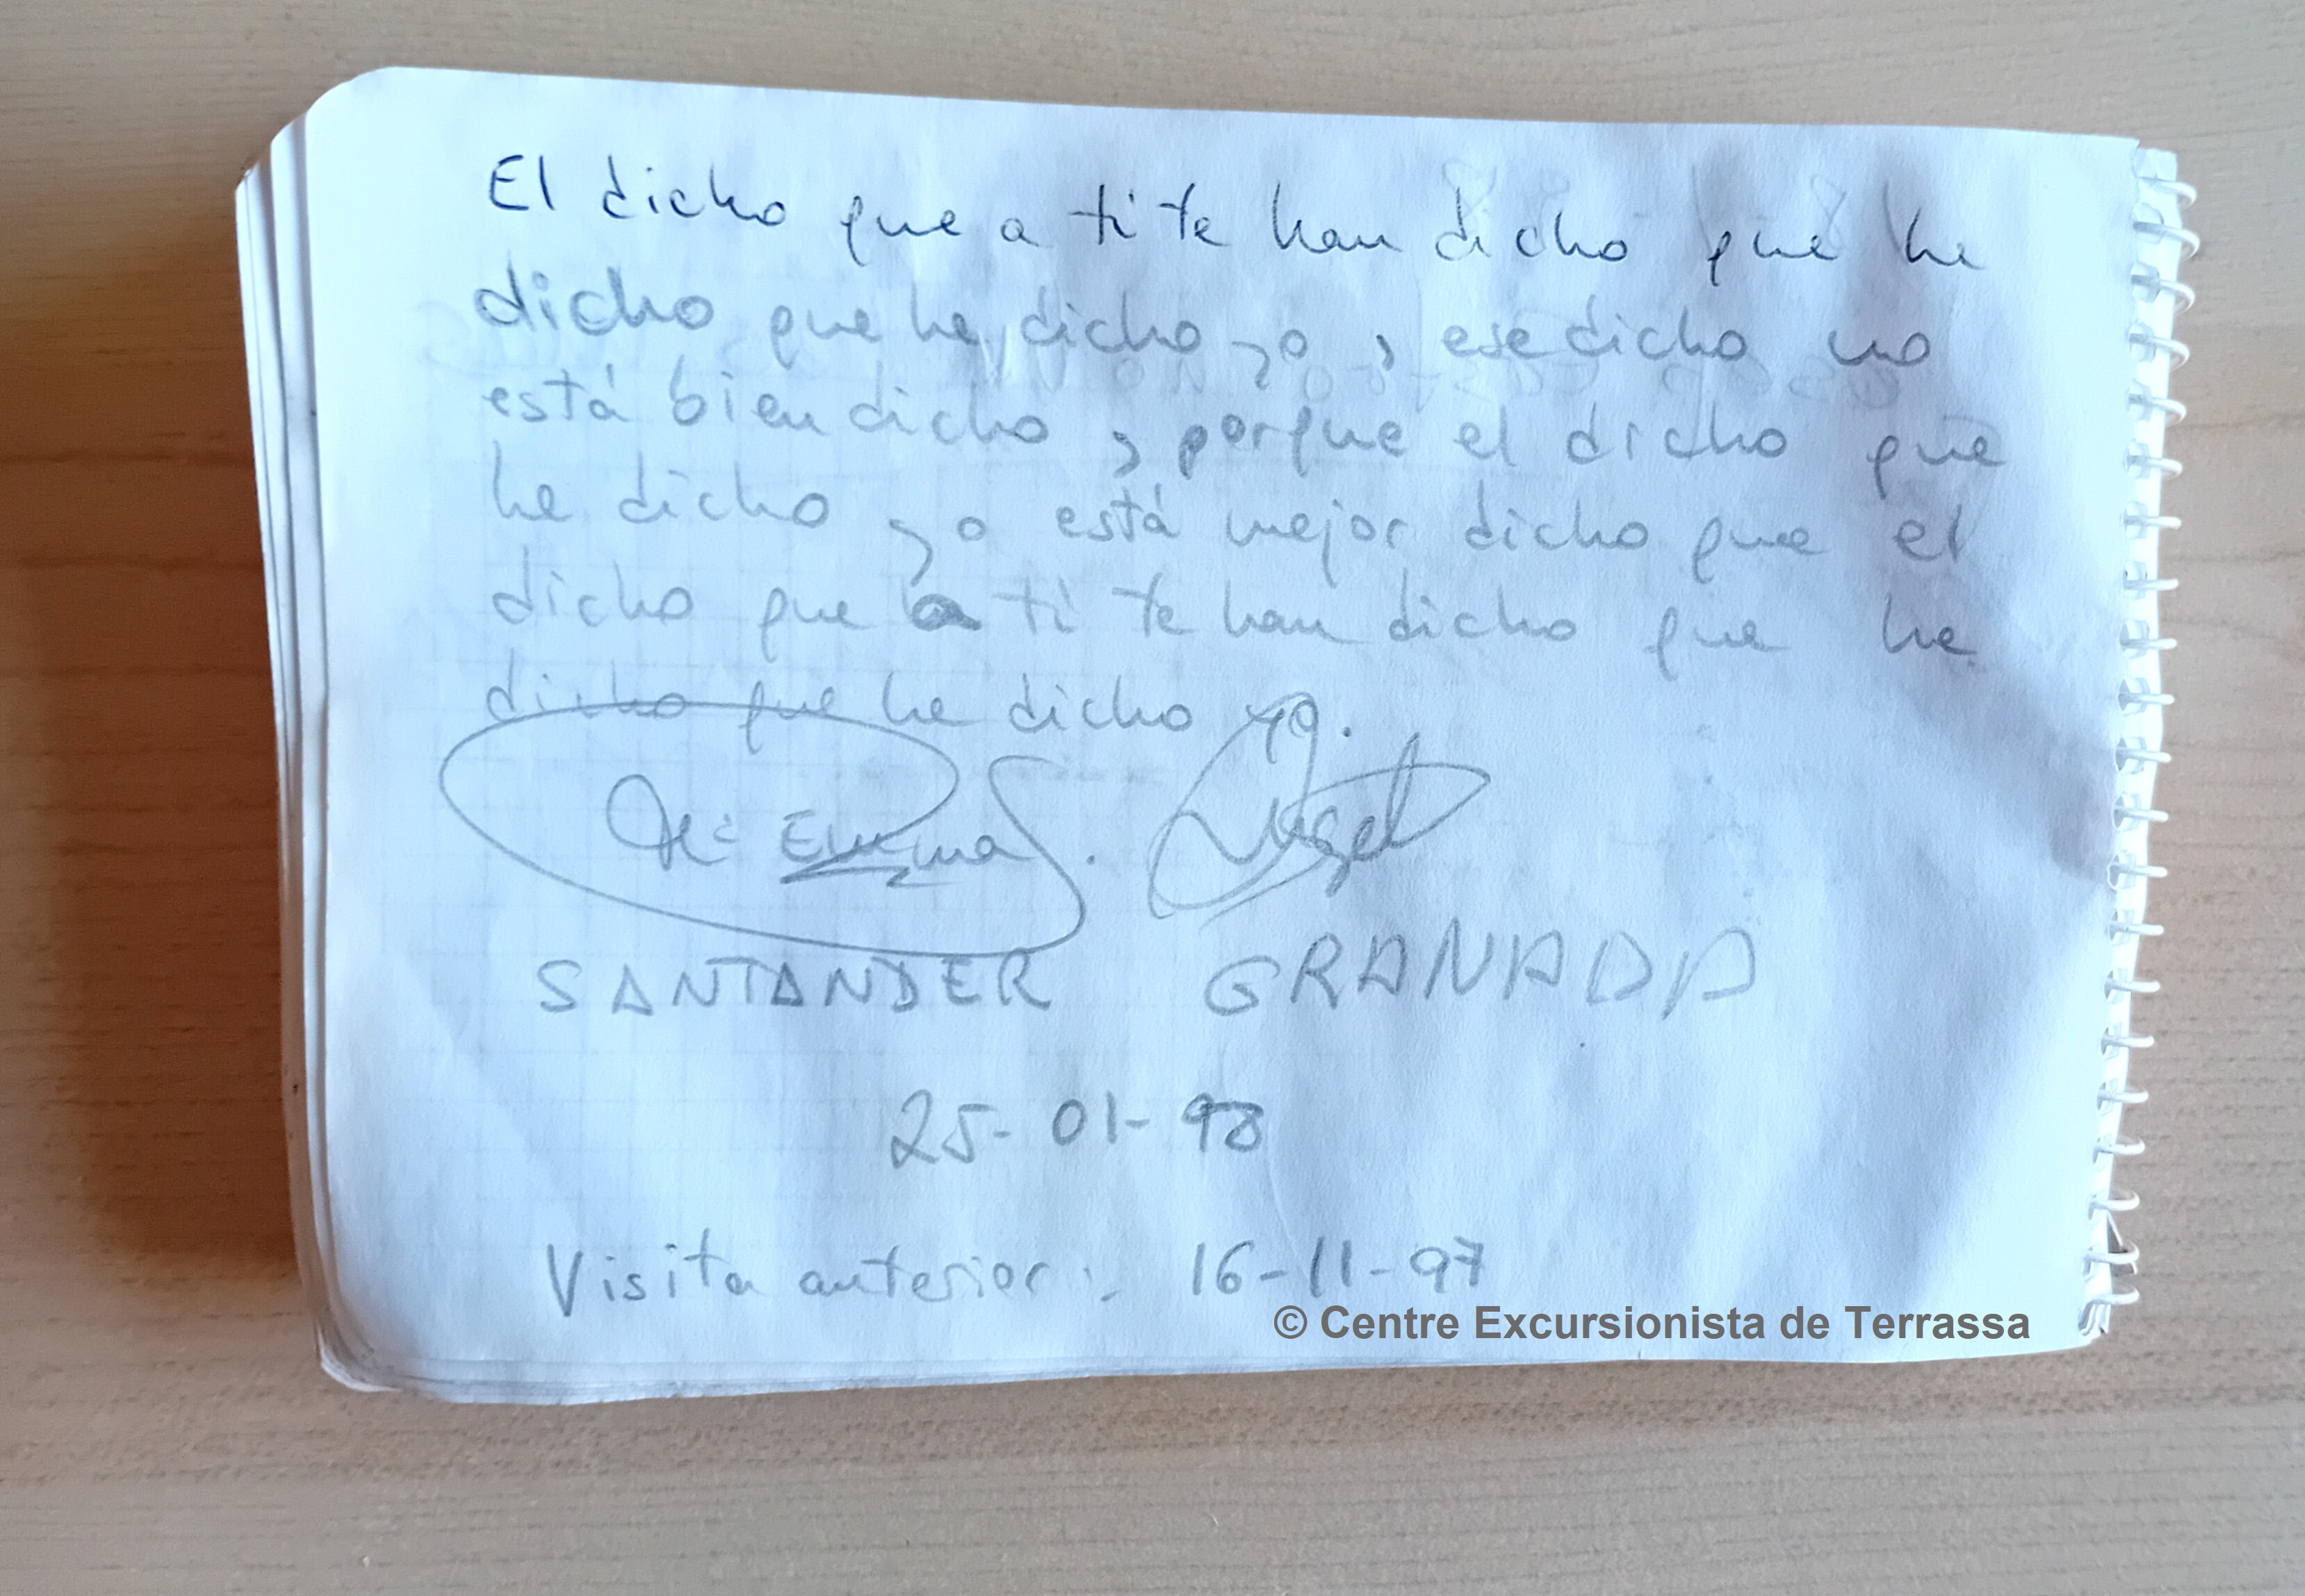 El dicho que a ti te han dicho que he
dicho que he dicho yo, ese dicho no
está bien dicho, porque el dicho que
he dicho yo está mejor dicho que el
dicho que a ti te han dicho que he
dicho que he dicho yo.
Mª Emma. Angel
SANTANDER GRANADA
25-01-98
Visita anterior: 16-11-97
© Centre Excursionista de Terrassa